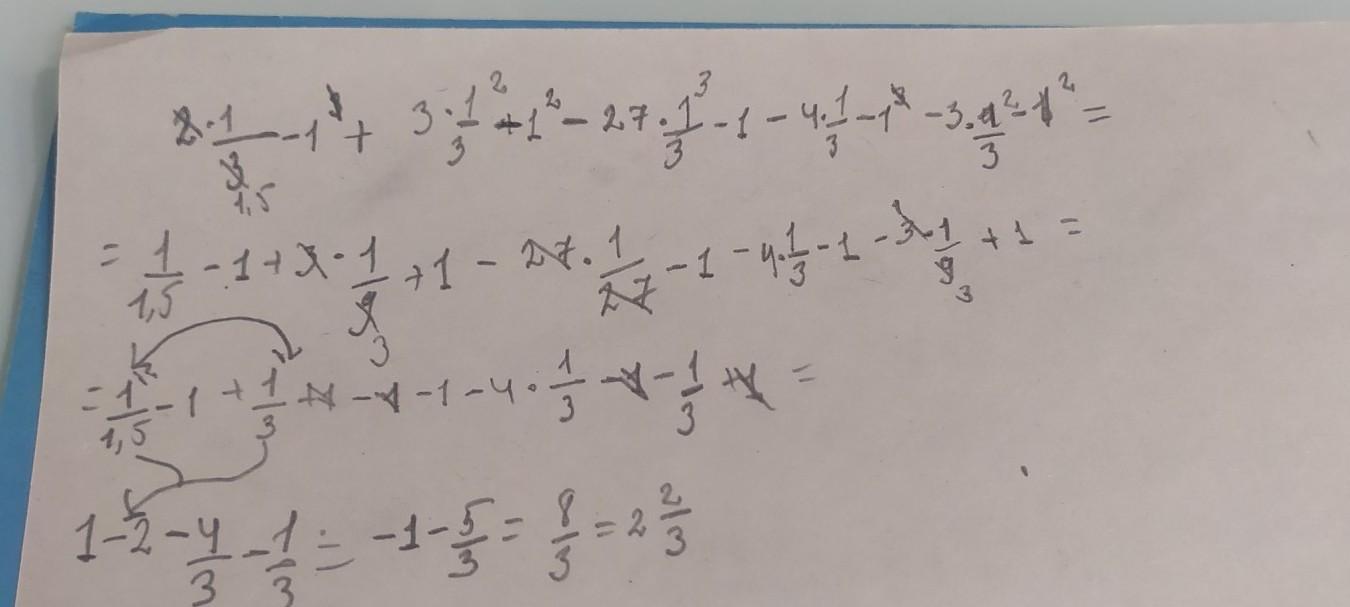 2·1/3 1,5 - 1³ + 3·1²/3 + 1² - 27·1³/3 - 1 - 4·1/3 - 1³ - 3·1²/3 - 1² =
= 1/1,5 - 1 + 3·1/9 3 + 1 - 27·1/27 - 1 - 4·1/3 - 1 - 3·1/9 3 + 1 =
= 1/1,5 - 1 + 1/3 + 1 - 1 - 1 - 4·1/3 - 1 - 1/3 + 1 =
1 - 2 - 4/3 - 1/3 = -1 - 5/3 = 8/3 = 2 2/3